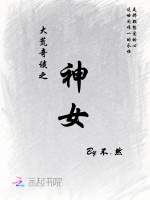 大荒奇谈之
神女
By 不.然
云起书院